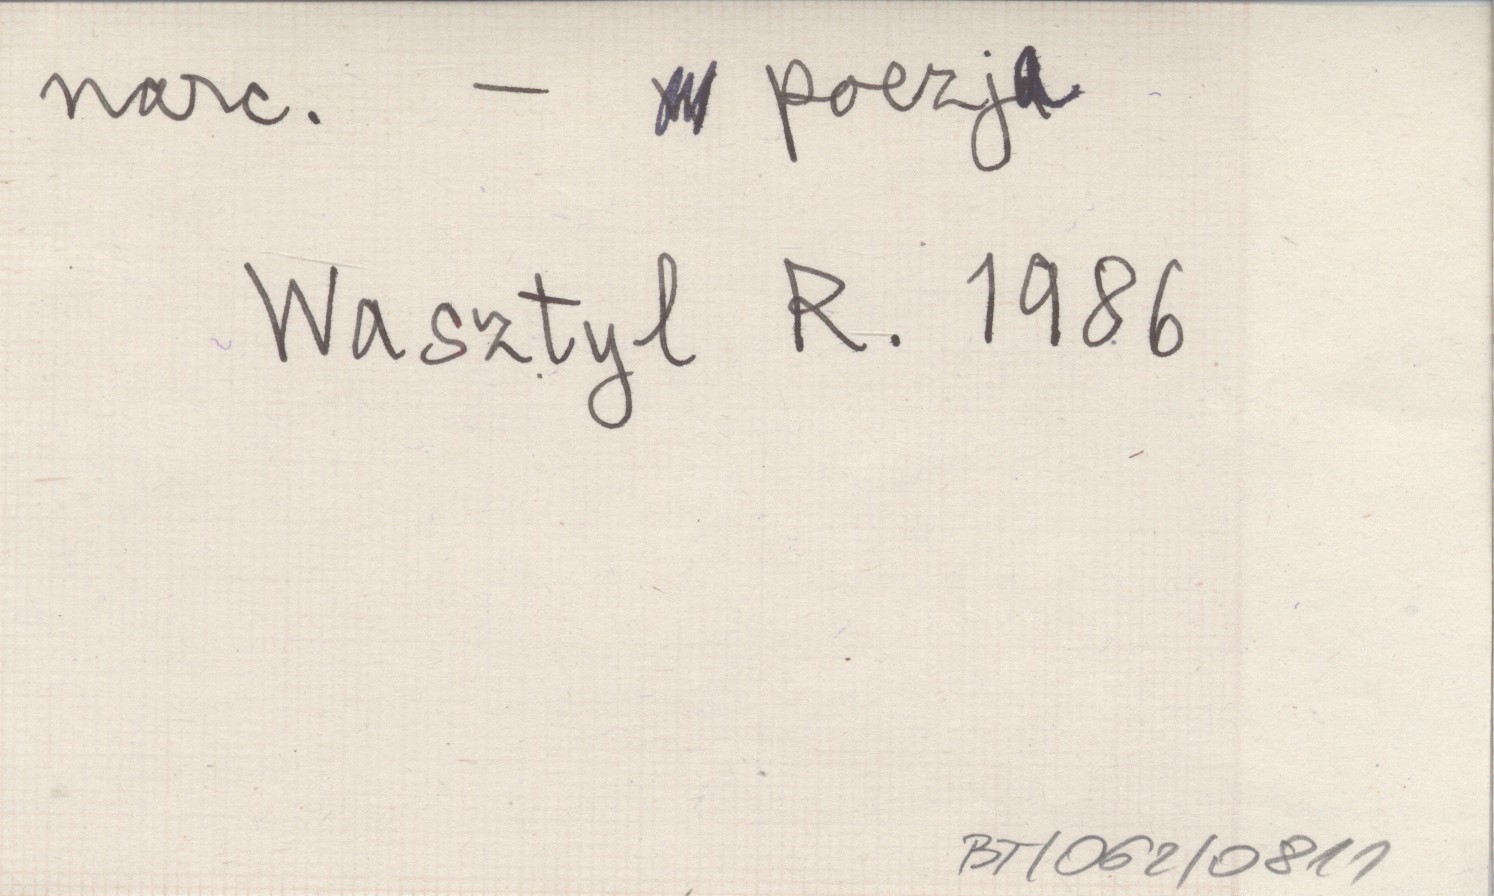 narc. — poezja
Wasztyl R. 1986
BT/062/0811